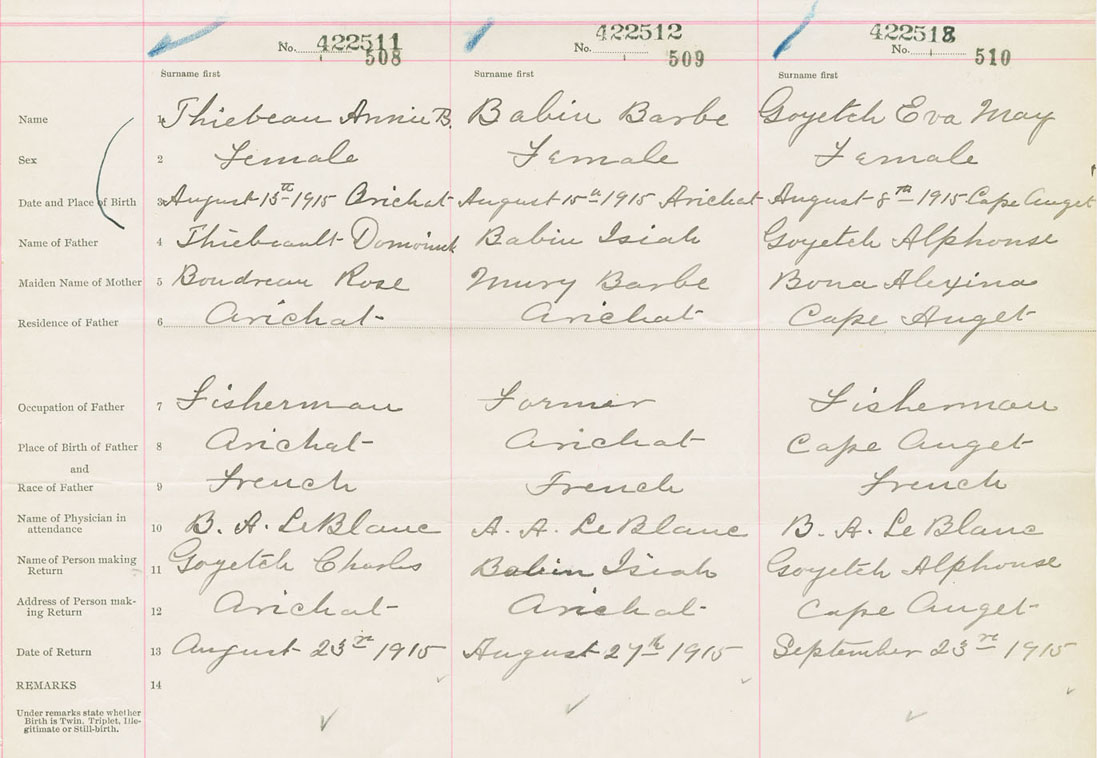 No. 422511 No. 422512 No. 422513
508 509 510
Surname first Surname first Surname first
Name 1 Thiebeau Annie B. Babin Barbe Goyetch Eva May
Sex 2 Female Female Female
Date and Place of Birth 3 August 15th 1915 Arichat August 15th 1915 Arichat August 8th 1915 Cape Auget
Name of Father 4 Thiebeault Dominick Babin Isiah Goyetch Alphonse
Maiden Name of Mother 5 Boudreau Rose Mury Barbe Bona Alexina
Residence of Father 6 Arichat Arichat Cape Auget
Occupation of Father 7 Fisherman Farmer Fisherman
Place of Birth of Father 8 Arichat Arichat Cape Auget
and
Race of Father 9 French French French
Name of Physician in
attendance 10 B. A. LeBlanc A. A. LeBlanc B. A. LeBlanc
Name of Person making
Return 11 Goyetch Charles Babin Isiah Goyetch Alphonse
Address of Person mak-
ing Return 12 Arichat Arichat Cape Auget
Date of Return 13 August 23rd 1915 August 27th 1915 September 23rd 1915
REMARKS 14
Under remarks state whether
Birth is Twin, Triplet, Ille-
gitimate or Still-birth.